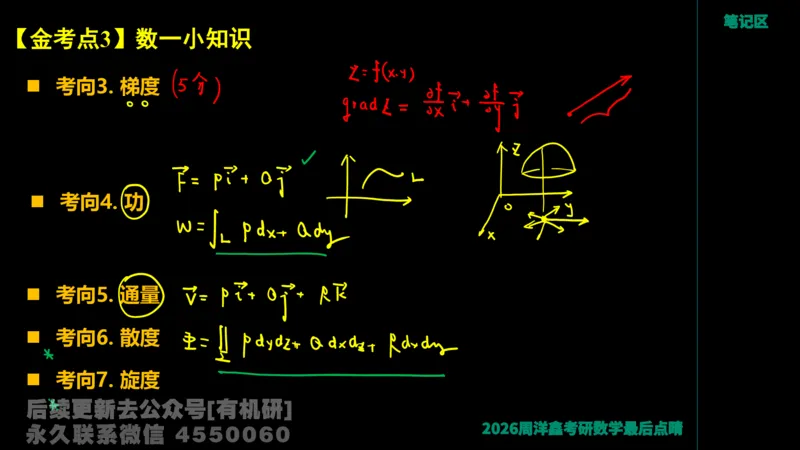 笔记区
【金考点3】数一小知识
考向3. 梯度 (5分)
z=f(x,y)
grad z = ∂f/∂x i⃗ + ∂f/∂y j⃗
考向4. 功
F⃗ = P i⃗ + Q j⃗
W = ∫_L P dx + Q dy
L
z
o
y
x
考向5. 通量
V⃗ = P i⃗ + Q j⃗ + R k⃗
考向6. 散度
Φ = ∬_Σ P dydz + Q dxdz + R dxdy
考向7. 旋度
后续更新去公众号[有机研]
永久联系微信 4550060
2026周洋鑫考研数学最后点睛